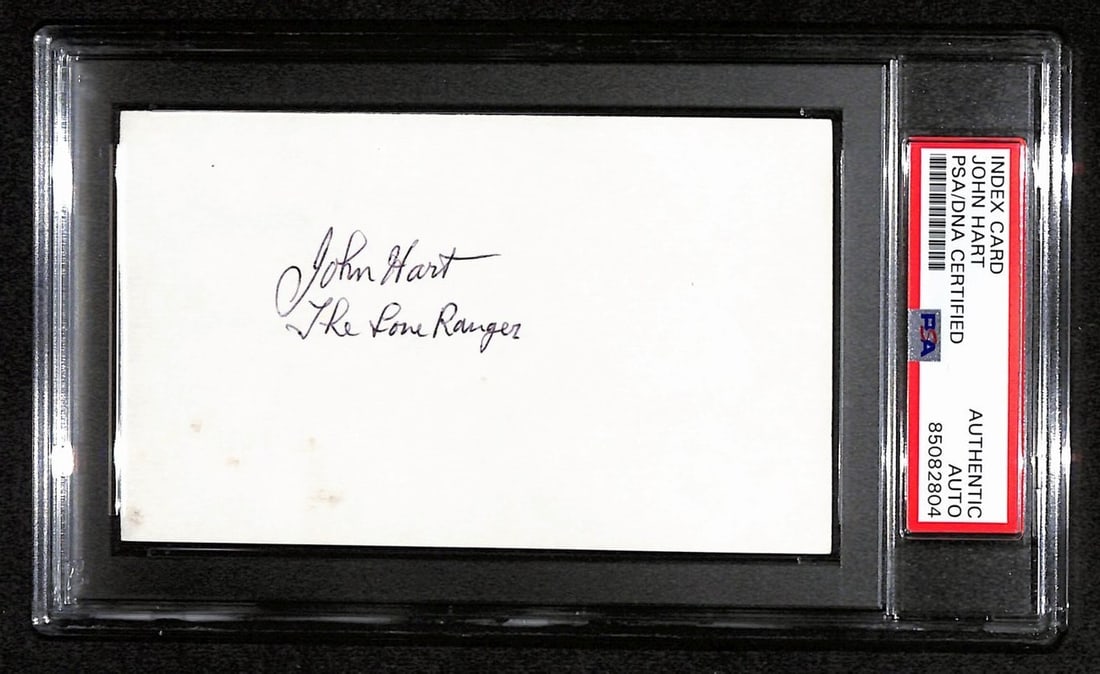 John Hart
The Lone Ranger
INDEX CARD
JOHN HART
PSA/DNA CERTIFIED
PSA
AUTHENTIC
AUTO
85082804